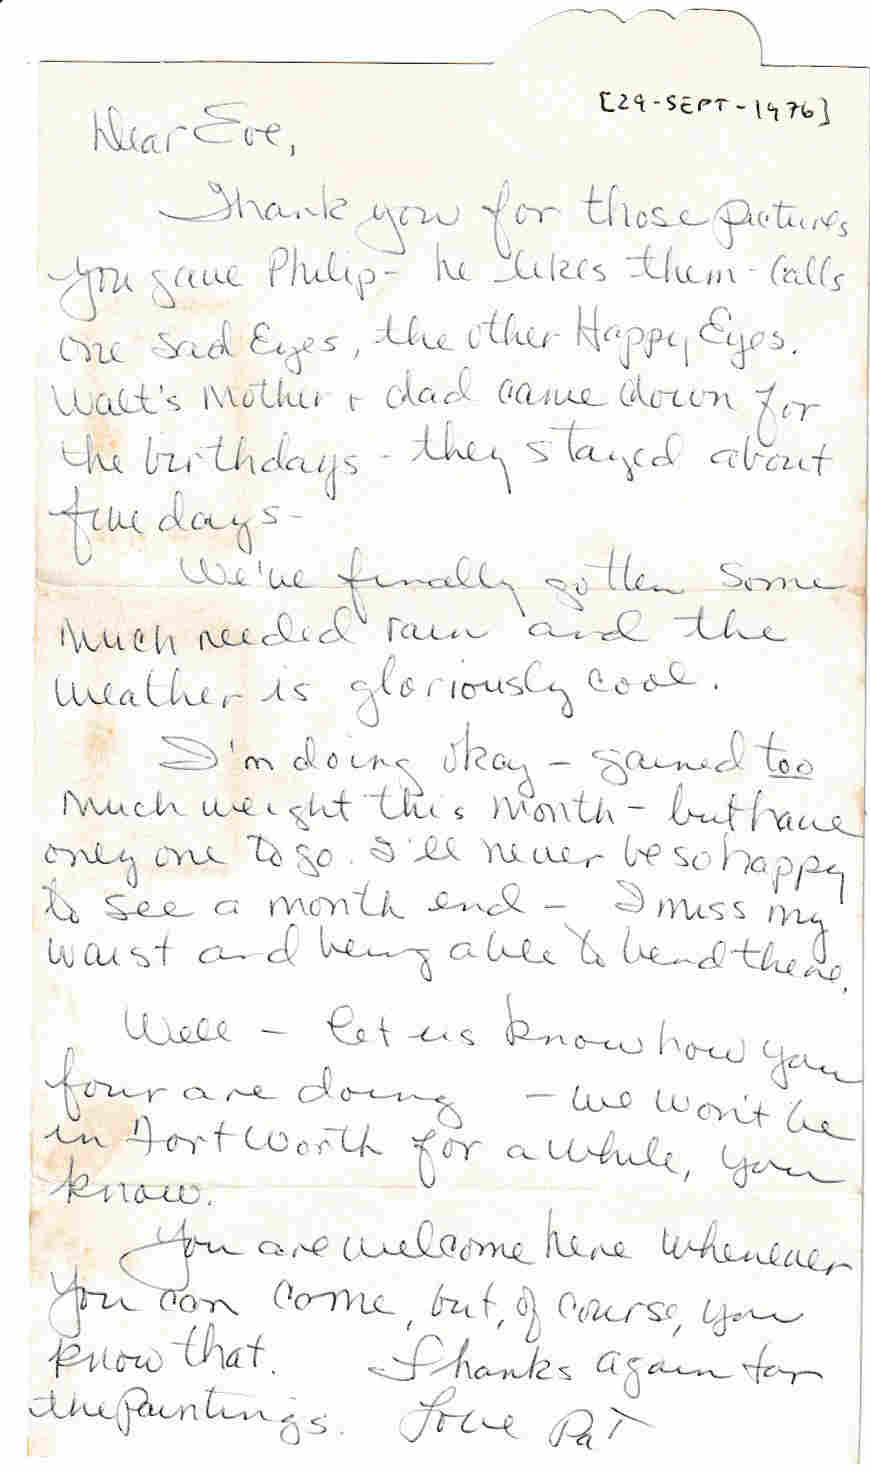 [29-SEPT-1976]
Dear Eve,
Thank you for those pictures
you gave Philip- he likes them - Calls
one Sad Eyes, the other Happy Eyes.
Walt's Mother + dad came down for
the birthdays - they stayed about
five days-
We've finally gotten some
much needed rain and the
weather is gloriously cool.
I'm doing okay - gained too
much weight this month - but have
only one to go. I'll never be so happy
to see a month end - I miss my
waist and being able to bend there.
Well - let us know how you
four are doing - we won't be
in Fort Worth for a while, you
know.
You are welcome here whenever
you can come, but, of course, you
know that. Thanks again for
the paintings. Love Pat